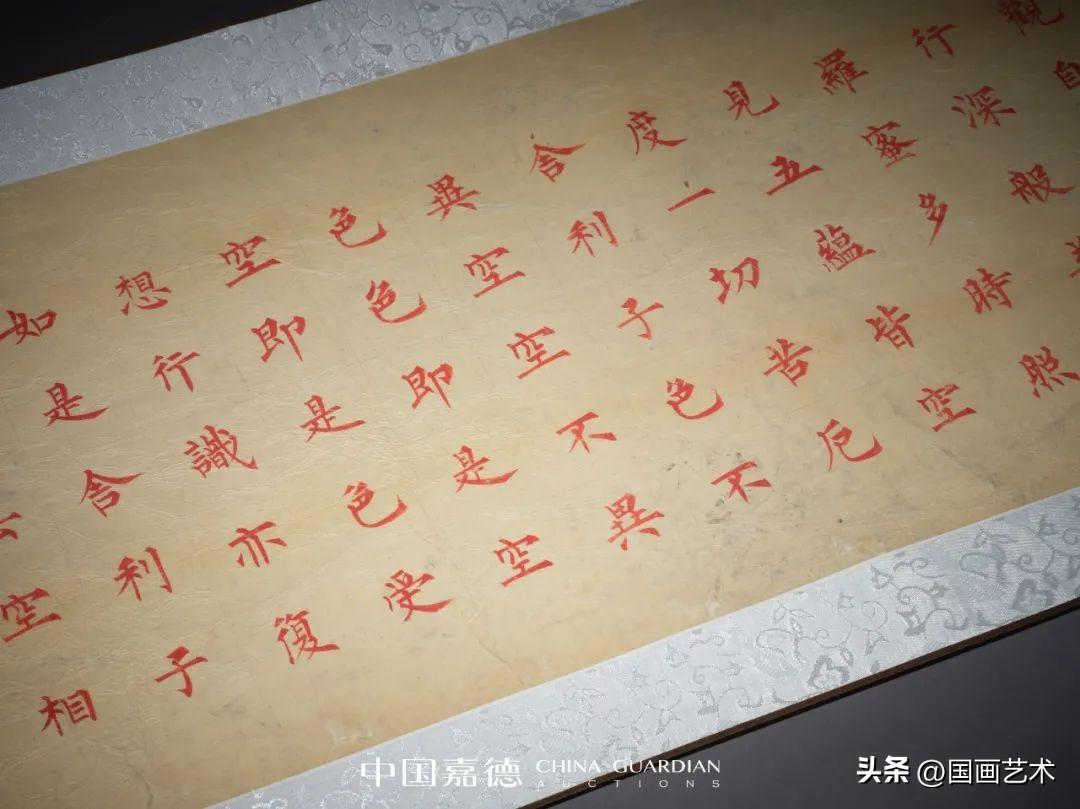 觀自
行深般
羅蜜多時照
見五蘊皆空
度一切苦厄
舍利子色不
異空空不異
色色即是空
空即是色受
想行識亦復
如是舍利子
空相
中国嘉德 CHINA GUARDIAN
AUCTIONS
头条 @国画艺术